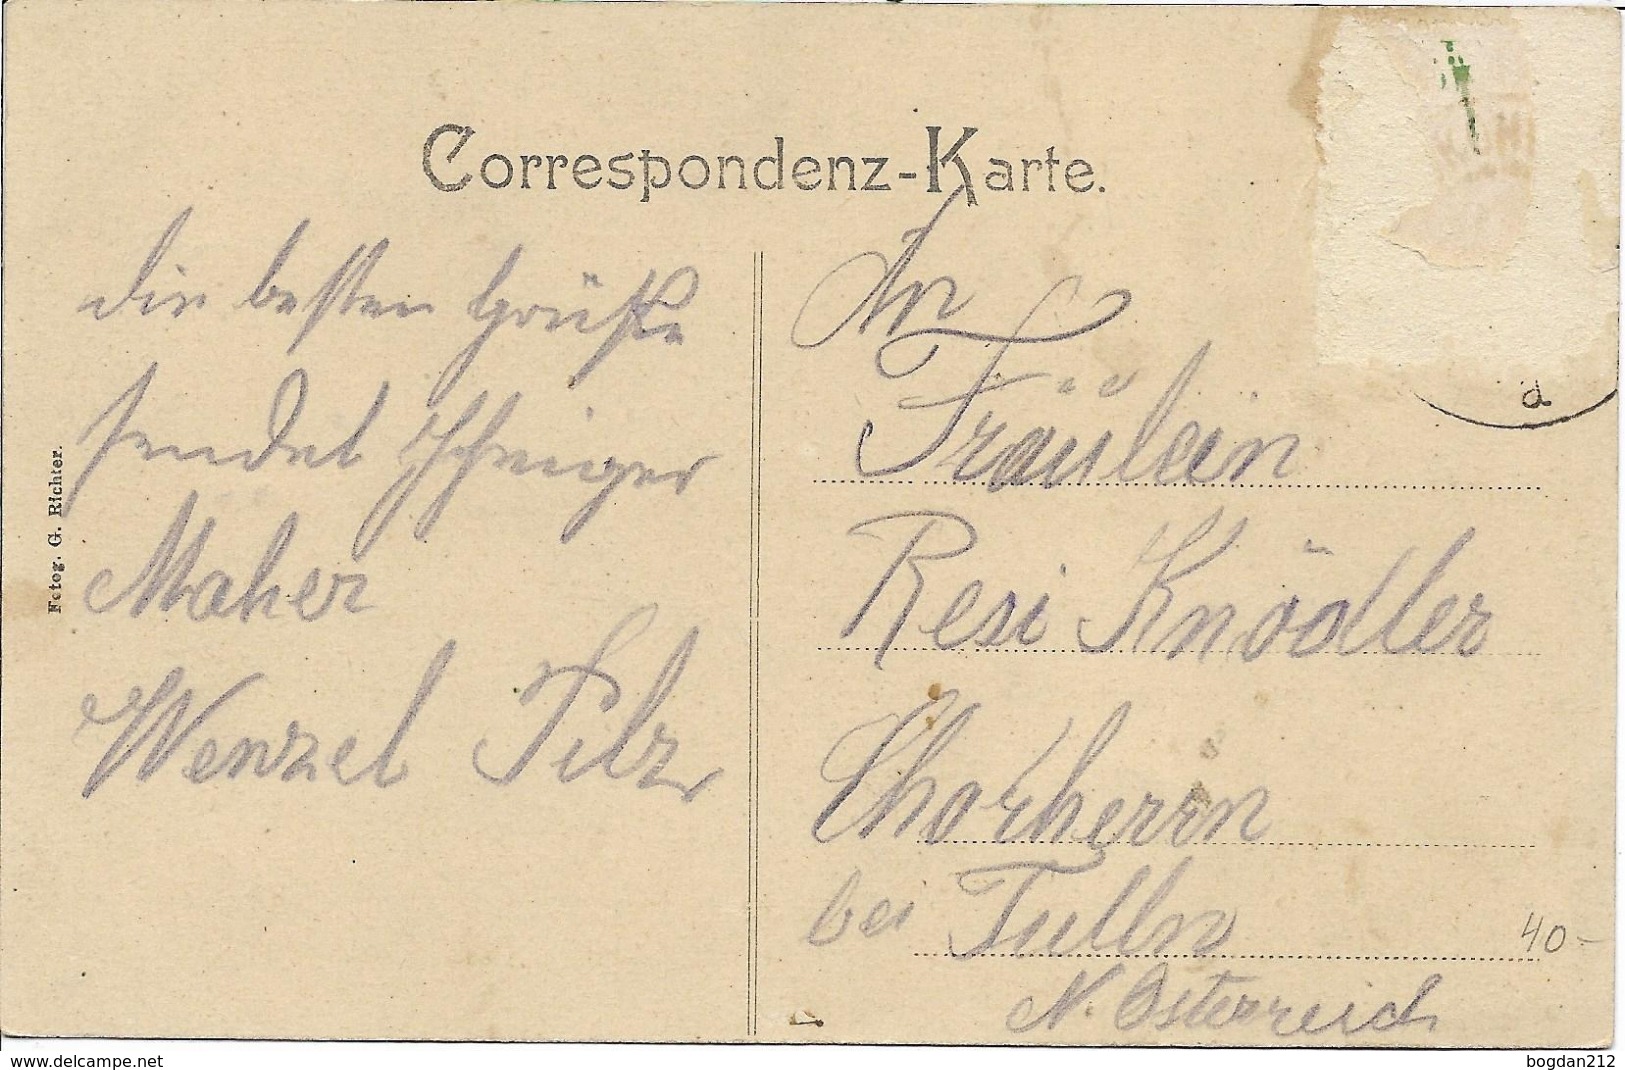 Correspondenz-Karte.
die besten Grüße
sendet
Maher
Wenzel Pilz
Fotog. G. Richter.
An
Fräulein
Resi Knödler
Chorherrn
bei Tulln
N. Österreich
40-
a
www.delcampe.net
bogdan212